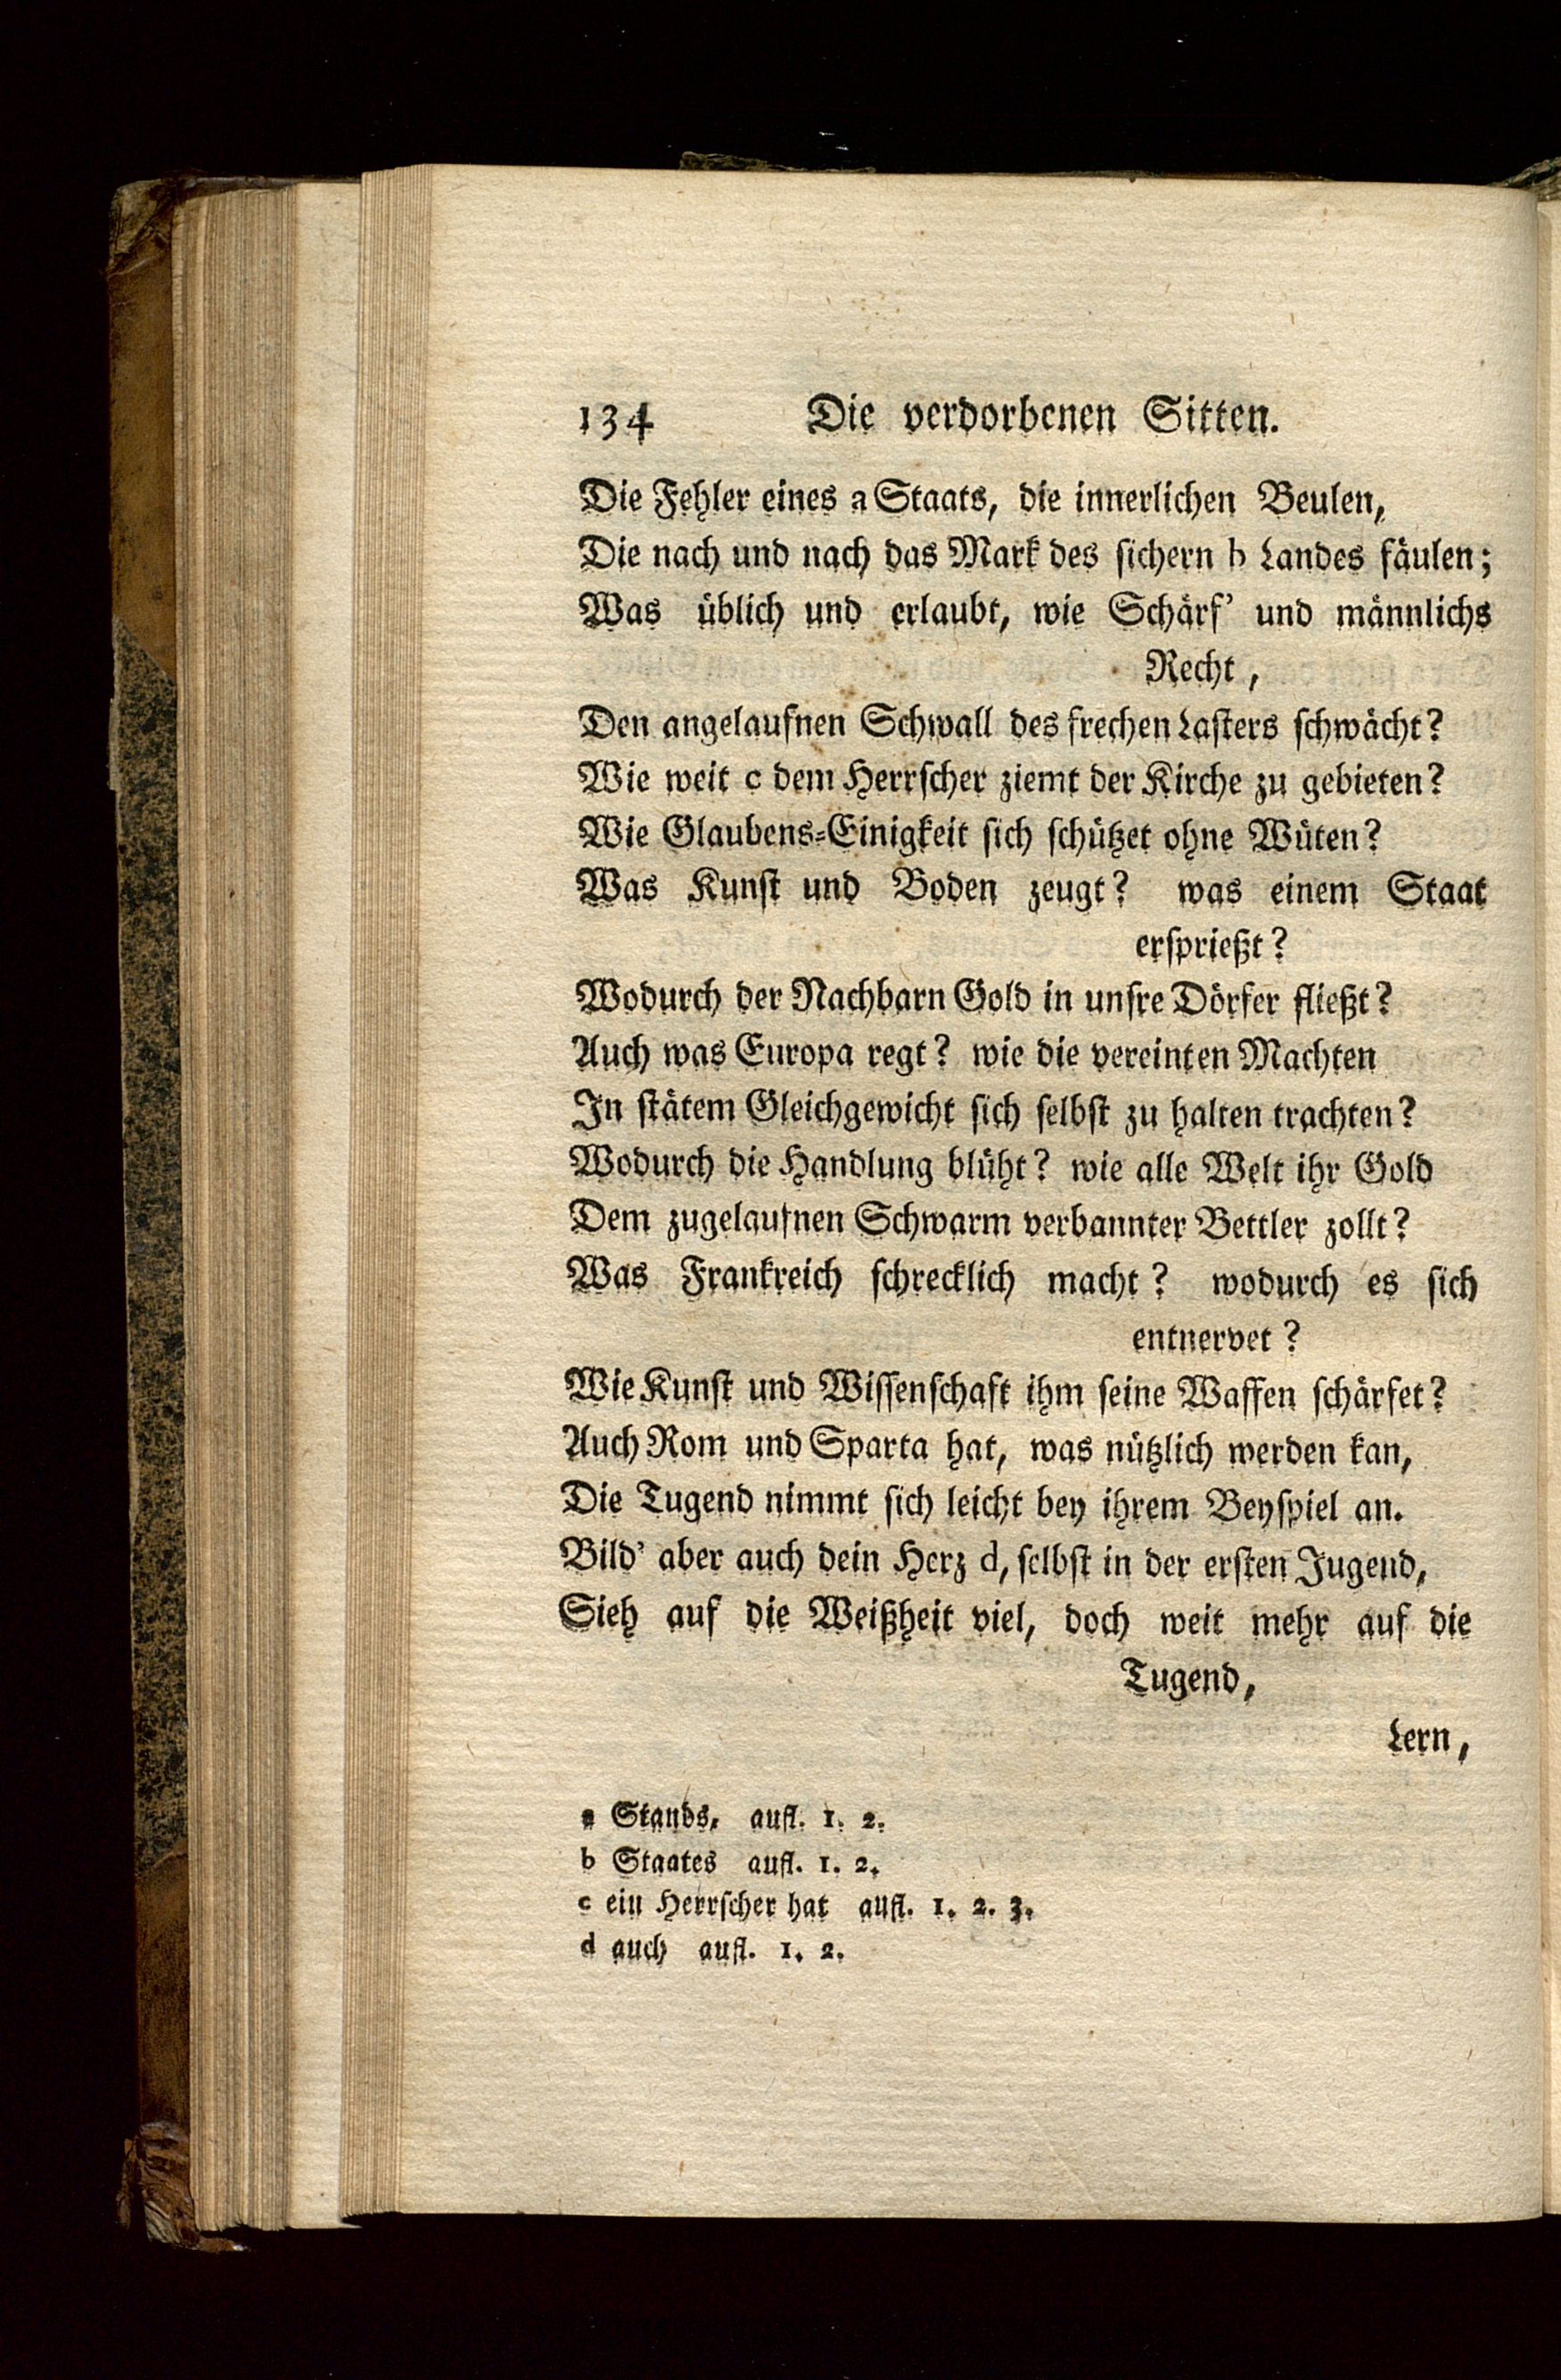 134 Die verdorbenen Sitten.
Die Fehler eines a Staats, die innerlichen Beulen,
Die nach und nach das Mark des sichern b Landes fäulen;
Was üblich und erlaubt, wie Schärf' und männlichs
Recht,
Den angelaufnen Schwall des frechen Lasters schwächt?
Wie weit c dem Herrscher ziemt der Kirche zu gebieten?
Wie Glaubens-Einigkeit sich schützet ohne Wüten?
Was Kunst und Boden zeugt? was einem Staat
ersprießt?
Wodurch der Nachbarn Gold in unsre Dörfer fließt?
Auch was Europa regt? wie die vereinten Machten
In stätem Gleichgewicht sich selbst zu halten trachten?
Wodurch die Handlung blüht? wie alle Welt ihr Gold
Dem zugelaufnen Schwarm verbannter Bettler zollt?
Was Frankreich schrecklich macht? wodurch es sich
entnervet?
Wie Kunst und Wissenschaft ihm seine Waffen schärfet?
Auch Rom und Sparta hat, was nützlich werden kan,
Die Tugend nimmt sich leicht bey ihrem Beyspiel an.
Bild' aber auch dein Herz d, selbst in der ersten Jugend,
Sieh auf die Weißheit viel, doch weit mehr auf die
Tugend,
Lern,
a Stands, aufl. 1. 2.
b Staates aufl. 1. 2.
c ein Herrscher hat aufl. 1. 2. 3.
d auch aufl. 1. 2.